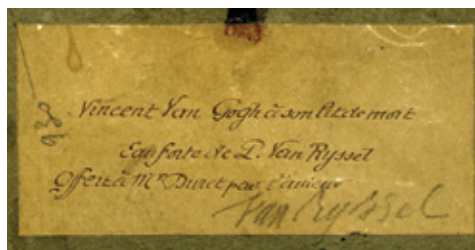 Vincent Van Gogh à son lit de mort
Eau forte de P. Van Ryssel
Offert à Mr Duret par l'auteur
Van Ryssel